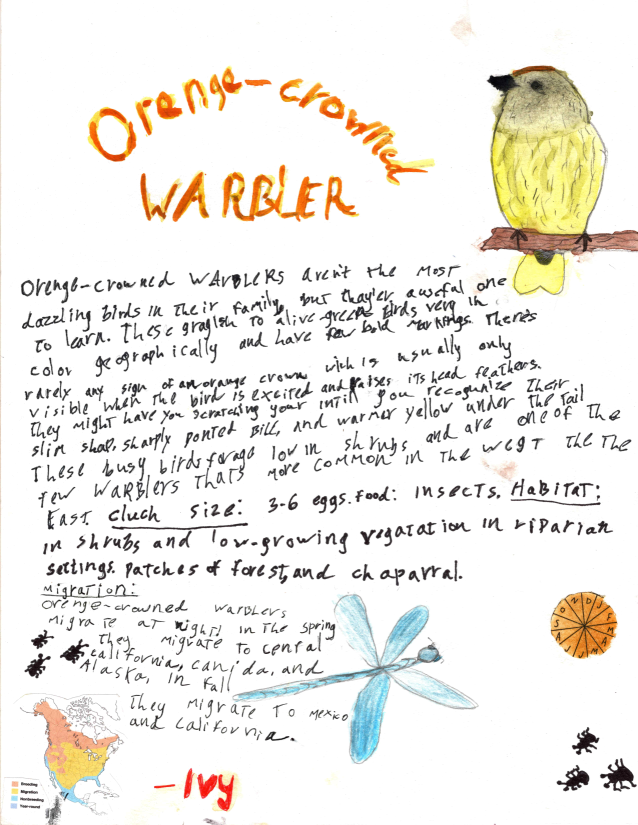 Orenge-crowned
WARBLER
Orenge-crowned WARBLERS aren't the most
dazzling birds in their family, but thay'er a useful one
to learn. These grayish to alive-green birds very in
color geographically and have few bold markings. There's
rarely any sign of an orange crown wich is usually only
visible when the bird is excited and raises its head feathers.
They might have you scratching your intill you recognize their
slim shap, sharply ponted Bill, and warmer yellow under the tail
These busy birds forage low in shrubs and are one of the
few WARBLERS thats more common in the west the the
East. Cluch size: 3-6 eggs. food: insects. HaBitat:
in shrubs and low-growing vegatation in riparian
settings. patches of forest, and chaparral.
Migration:
Orenge-crowned warblers
migrate at night! in the spring
they migrate to cental
california, canida, and
Alaska, in fall
they migrate to mexico
and california.
O N D J F M A M J J A S
Breeding
Migration
Nonbreeding
Year-round
-Ivy